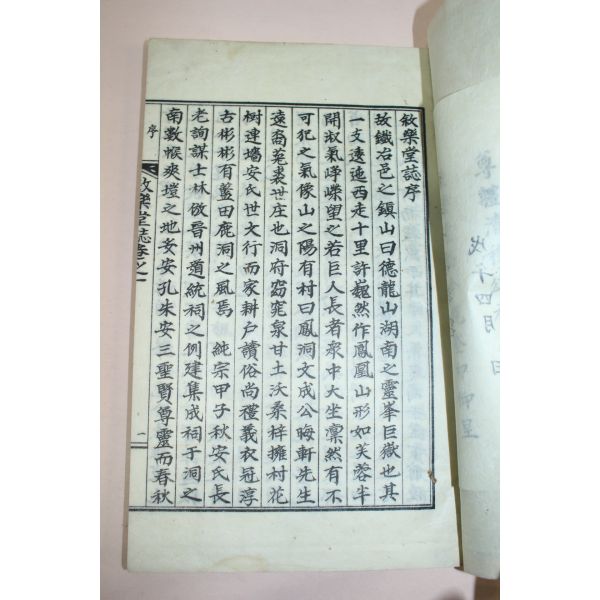 敘樂堂誌序
故鐵冶邑之鎭山曰德龍山湖南之靈峯巨嶽也其
一支逶迤西走十里許巍然作鳳凰山形如芙蓉半
開淑氣崢嶸望之若巨人長者衆中大坐凜然有不
可犯之氣像山之陽有村曰鳳洞文成公晦軒先生
遠裔菟裘世庄也洞府窈窕泉甘土沃桑梓擁村花
樹連墻安氏世文行而家耕戶讀俗尙禮義衣冠淳
古彬彬有藍田鹿洞之風焉 純宗甲子秋安氏長
老詢謀士林倣晋州道統祠之例建集成祠于洞之
南數帿爽塏之地妥安孔朱安三聖賢尊靈而春秋
序
敘樂堂誌卷之一
一
尊
戊午四月 日
呈